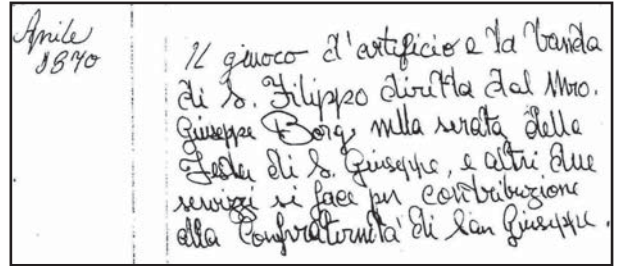 Aprile
1870
Il giuoco d'artificio e la banda
di S. Filippo diretta dal Mro.
Giuseppe Borg, nella serata della
Festa di S. Giuseppe, e altri due
servizi si fece per contribuzione
alla Confraternità di San Giuseppe.